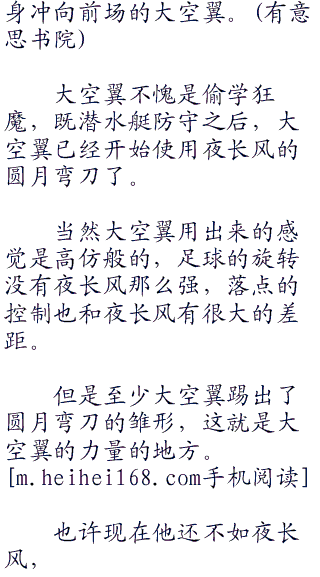 身冲向前场的大空翼。(有意
思书院)
大空翼不愧是偷学狂
魔，既潜水艇防守之后，大
空翼已经开始使用夜长风的
圆月弯刀了。
当然大空翼用出来的感
觉是高仿般的，足球的旋转
没有夜长风那么强，落点的
控制也和夜长风有很大的差
距。
但是至少大空翼踢出了
圆月弯刀的雏形，这就是大
空翼的力量的地方。
[m.heihei168.com手机阅读]
也许现在他还不如夜长
风，